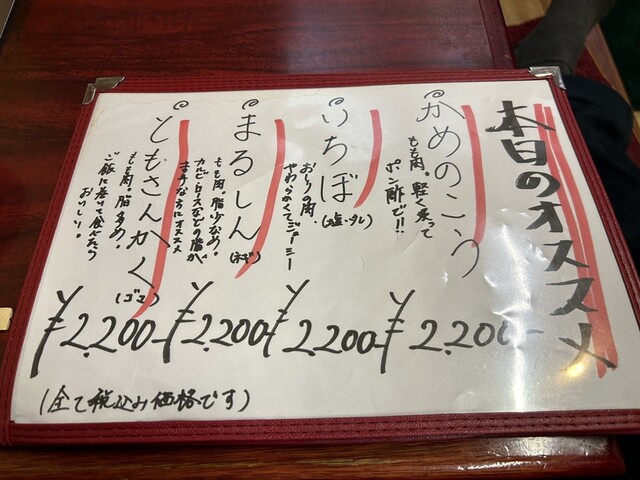 本日のオススメ
かめのこう
もも肉。軽く炙って
ポン酢で!!
¥2,200-
いちぼ
(塩・タレ)
おしりの肉。
やわらかくてジューシー
¥2,200-
まるしん
(ネギ)
もも肉。脂少なめ。
カルビ・ロースなどの脂が
苦手な方にオススメ
¥2,200-
ともさんかく
(ゴマ)
もも肉。脂多め。
ご飯に巻って食べたら
おいしい。
¥2,200-
(全て税込み価格です)